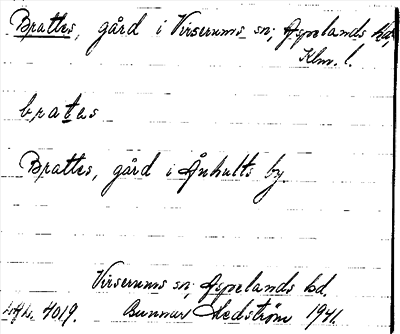 Brattes, gård i Virserums sn; Aspelands hd,
Klm. l.
brates
Brattes, gård i Ånhults by
Virserums sn, Aspelands hd.
4019. Gunnar Hedström 1941